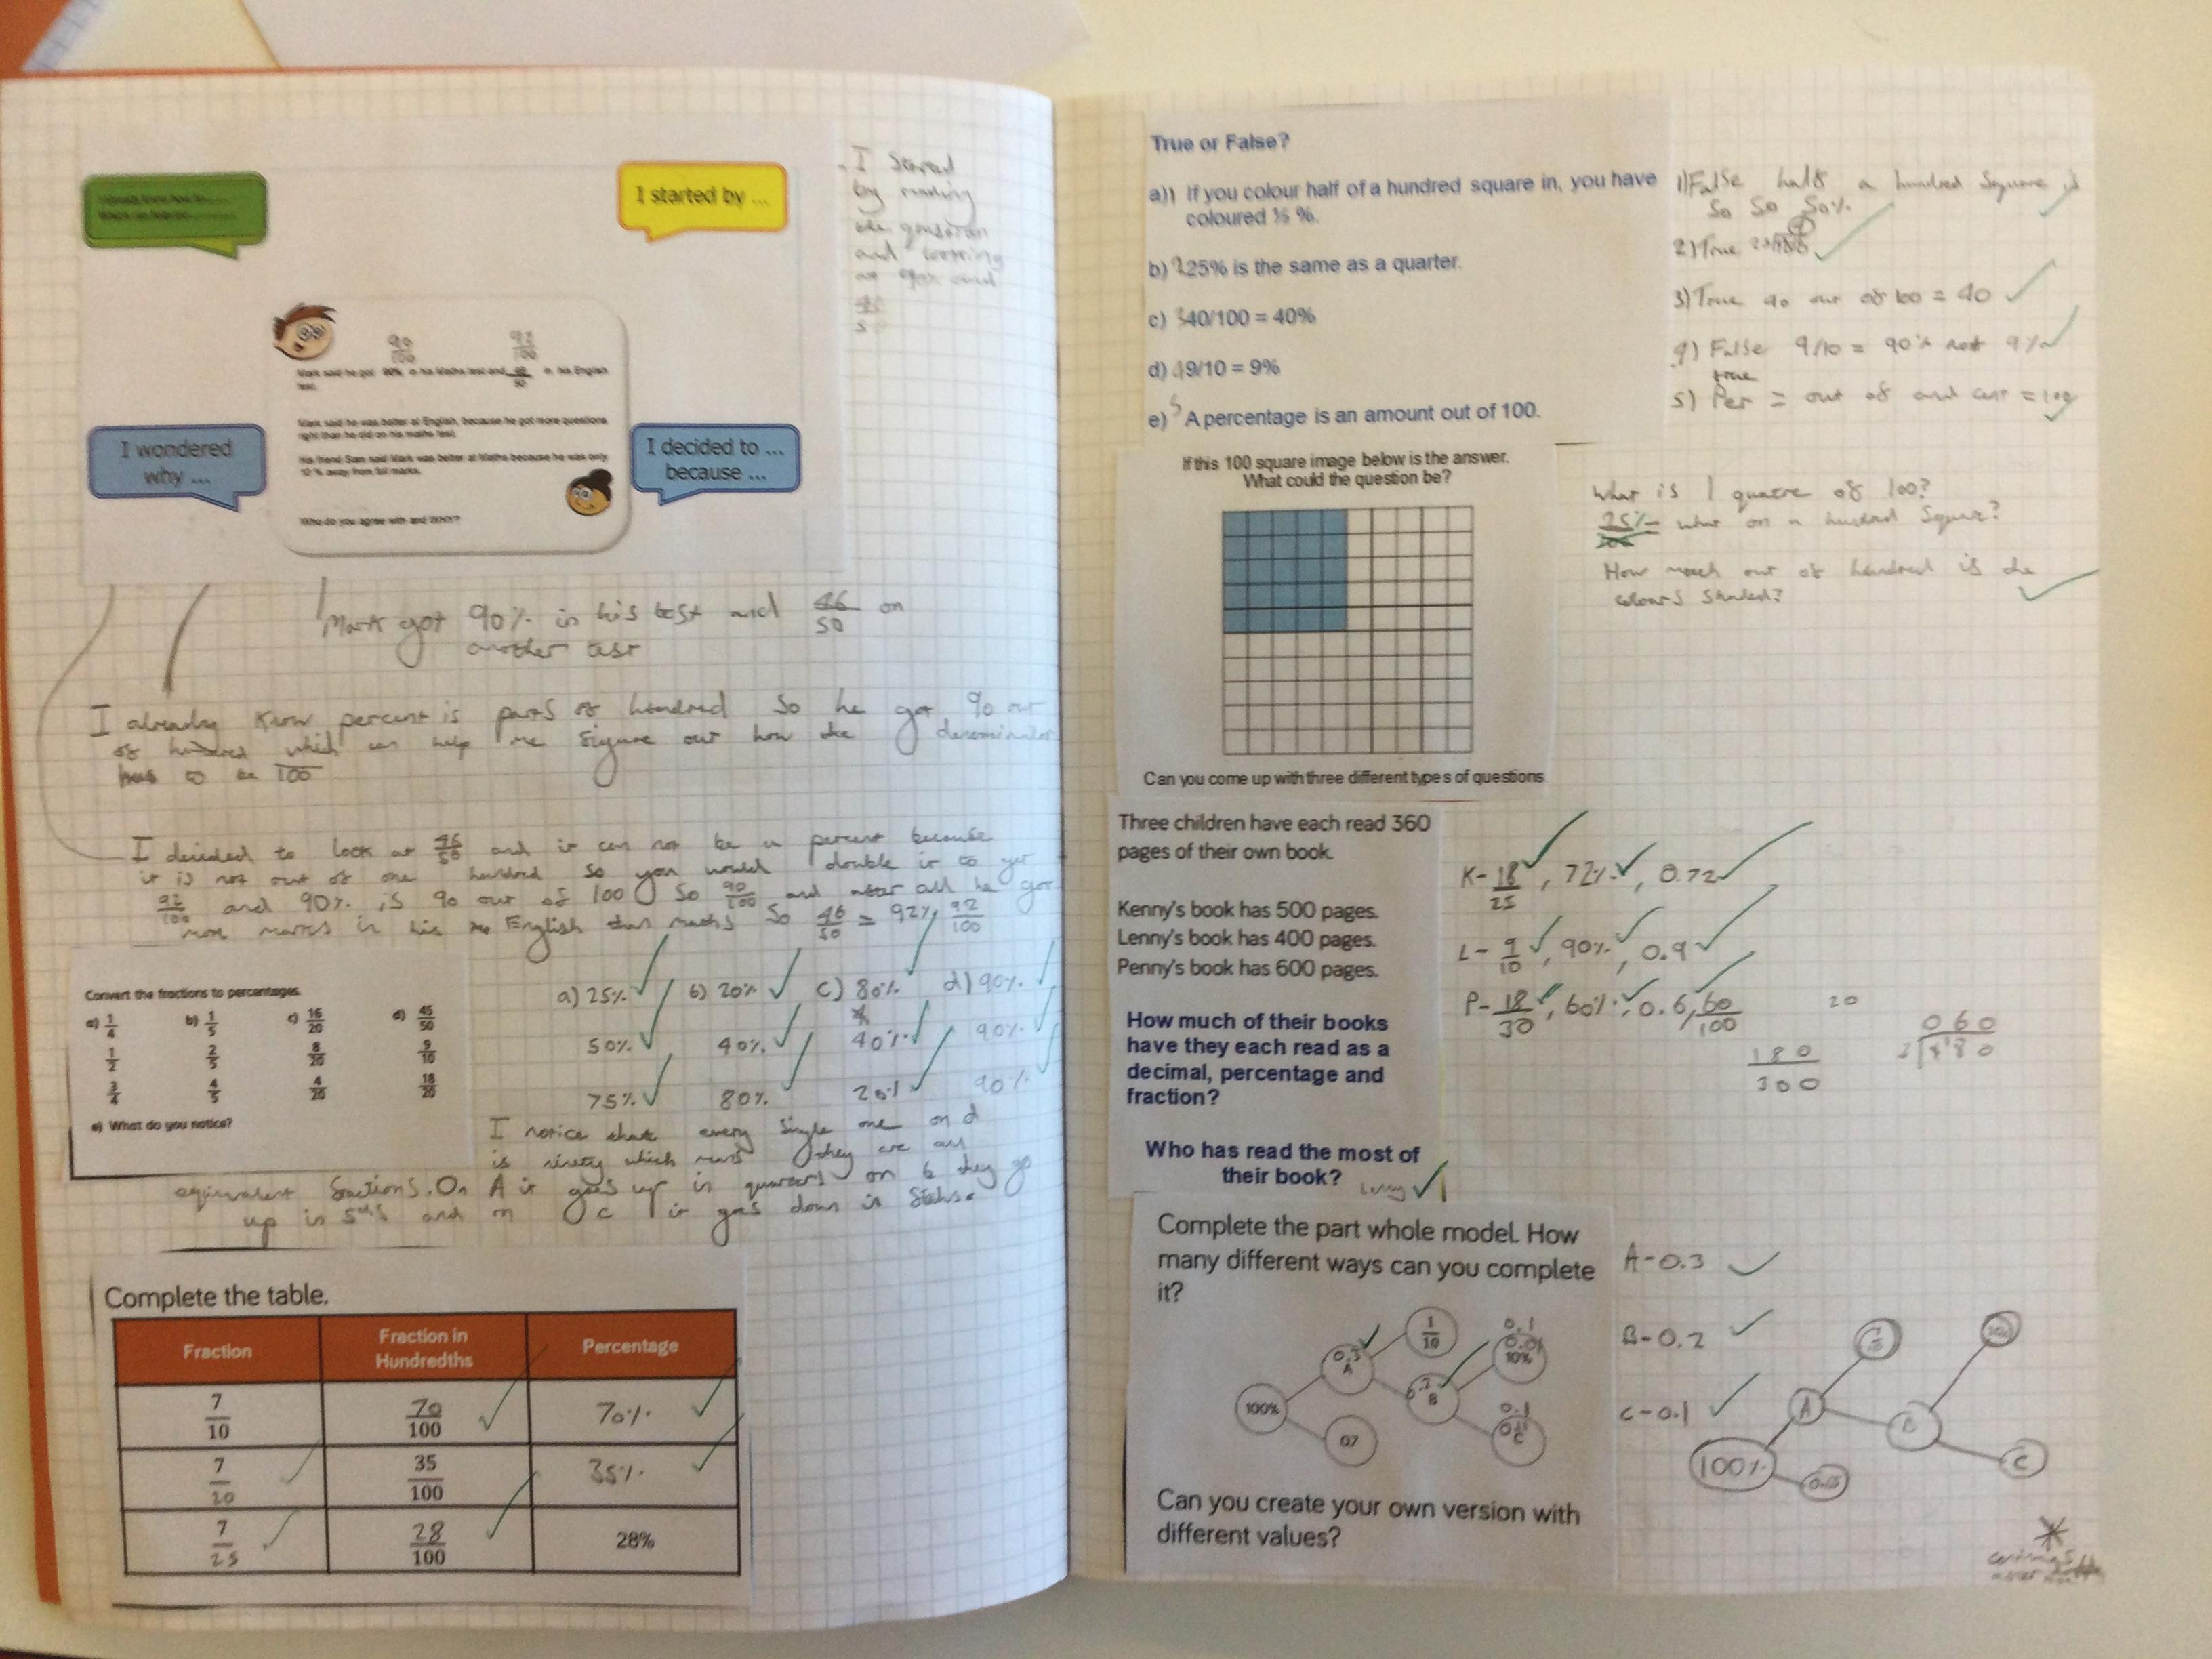 I started by ...
I wondered
why ...
I decided to ...
because ...
90
100
92
100
Mark said he got 90% in his Maths test and 46/50 in his English
test.
Mark said he was better at English, because he got more questions
right than he did on his maths test.
His friend Sam said Mark was better at Maths because he was only
10 % away from full marks.
Who do you agree with and WHY?
I Started
by reading
and
90% and
Mark got 90% in his test and 46/50 on
another test
I already know percent is parts of hundred so he got 90 out
of hundred which can help me figure out how the denominator
has to be 100
I decided to look at 46/50 and it can not be a percent because
it is not out of one hundred so you would double it to get
92/100 and 90% is 90 out of 100 so 90/100 and after all he got
more marks in his English than maths So 46/50 = 92% 92/100
Convert the fractions to percentages.
a) 1/4 b) 1/5 c) 16/20 d) 45/50
1/2 2/5 8/20 9/10
3/4 4/5 4/20 18/20
e) What do you notice?
a) 25% b) 20% c) 80% d) 90%
50% 40% 40% 90%
75% 80% 20% 90%
I notice that every single one on d
is ninety which means they are all
equivalent fractions. On A it goes up in quarters on b they go
up in 5ths and on c it goes down in
Complete the table.
Fraction
Fraction in
Hundredths
Percentage
7/10 70/100 70%
7/20 35/100 35%
7/25 28/100 28%
True or False?
a) 1 If you colour half of a hundred square in, you have
coloured ½ %.
b) 2 25% is the same as a quarter.
c) 3 40/100 = 40%
d) 4 9/10 = 9%
e) 5 A percentage is an amount out of 100.
1) False half a hundred square is
50 so 50%
2) True
3) True 40 out of 100 = 40
4) False 9/10 = 90% not 9%
true
5) Per = out of and cent = 100
If this 100 square image below is the answer.
What could the question be?
Can you come up with three different types of questions
What is 1 quatre of 100?
25% = what on a hundred Square?
How much out of hundred is the
colours shaded?
Three children have each read 360
pages of their own book.
Kenny's book has 500 pages.
Lenny's book has 400 pages.
Penny's book has 600 pages.
How much of their books
have they each read as a
decimal, percentage and
fraction?
Who has read the most of
their book? Lenny
K - 18/25, 72%, 0.72
L - 9/10, 90%, 0.9
P - 18/30, 60%, 0.6, 60/100
20
180
300
060
3 180
Complete the part whole model. How
many different ways can you complete
it?
100%
0.3
A
1/10
0.7
0.2
B
0.1
10%
0.1
C
A - 0.3
B - 0.2
C - 0.1
A
B
C
100%
Can you create your own version with
different values?